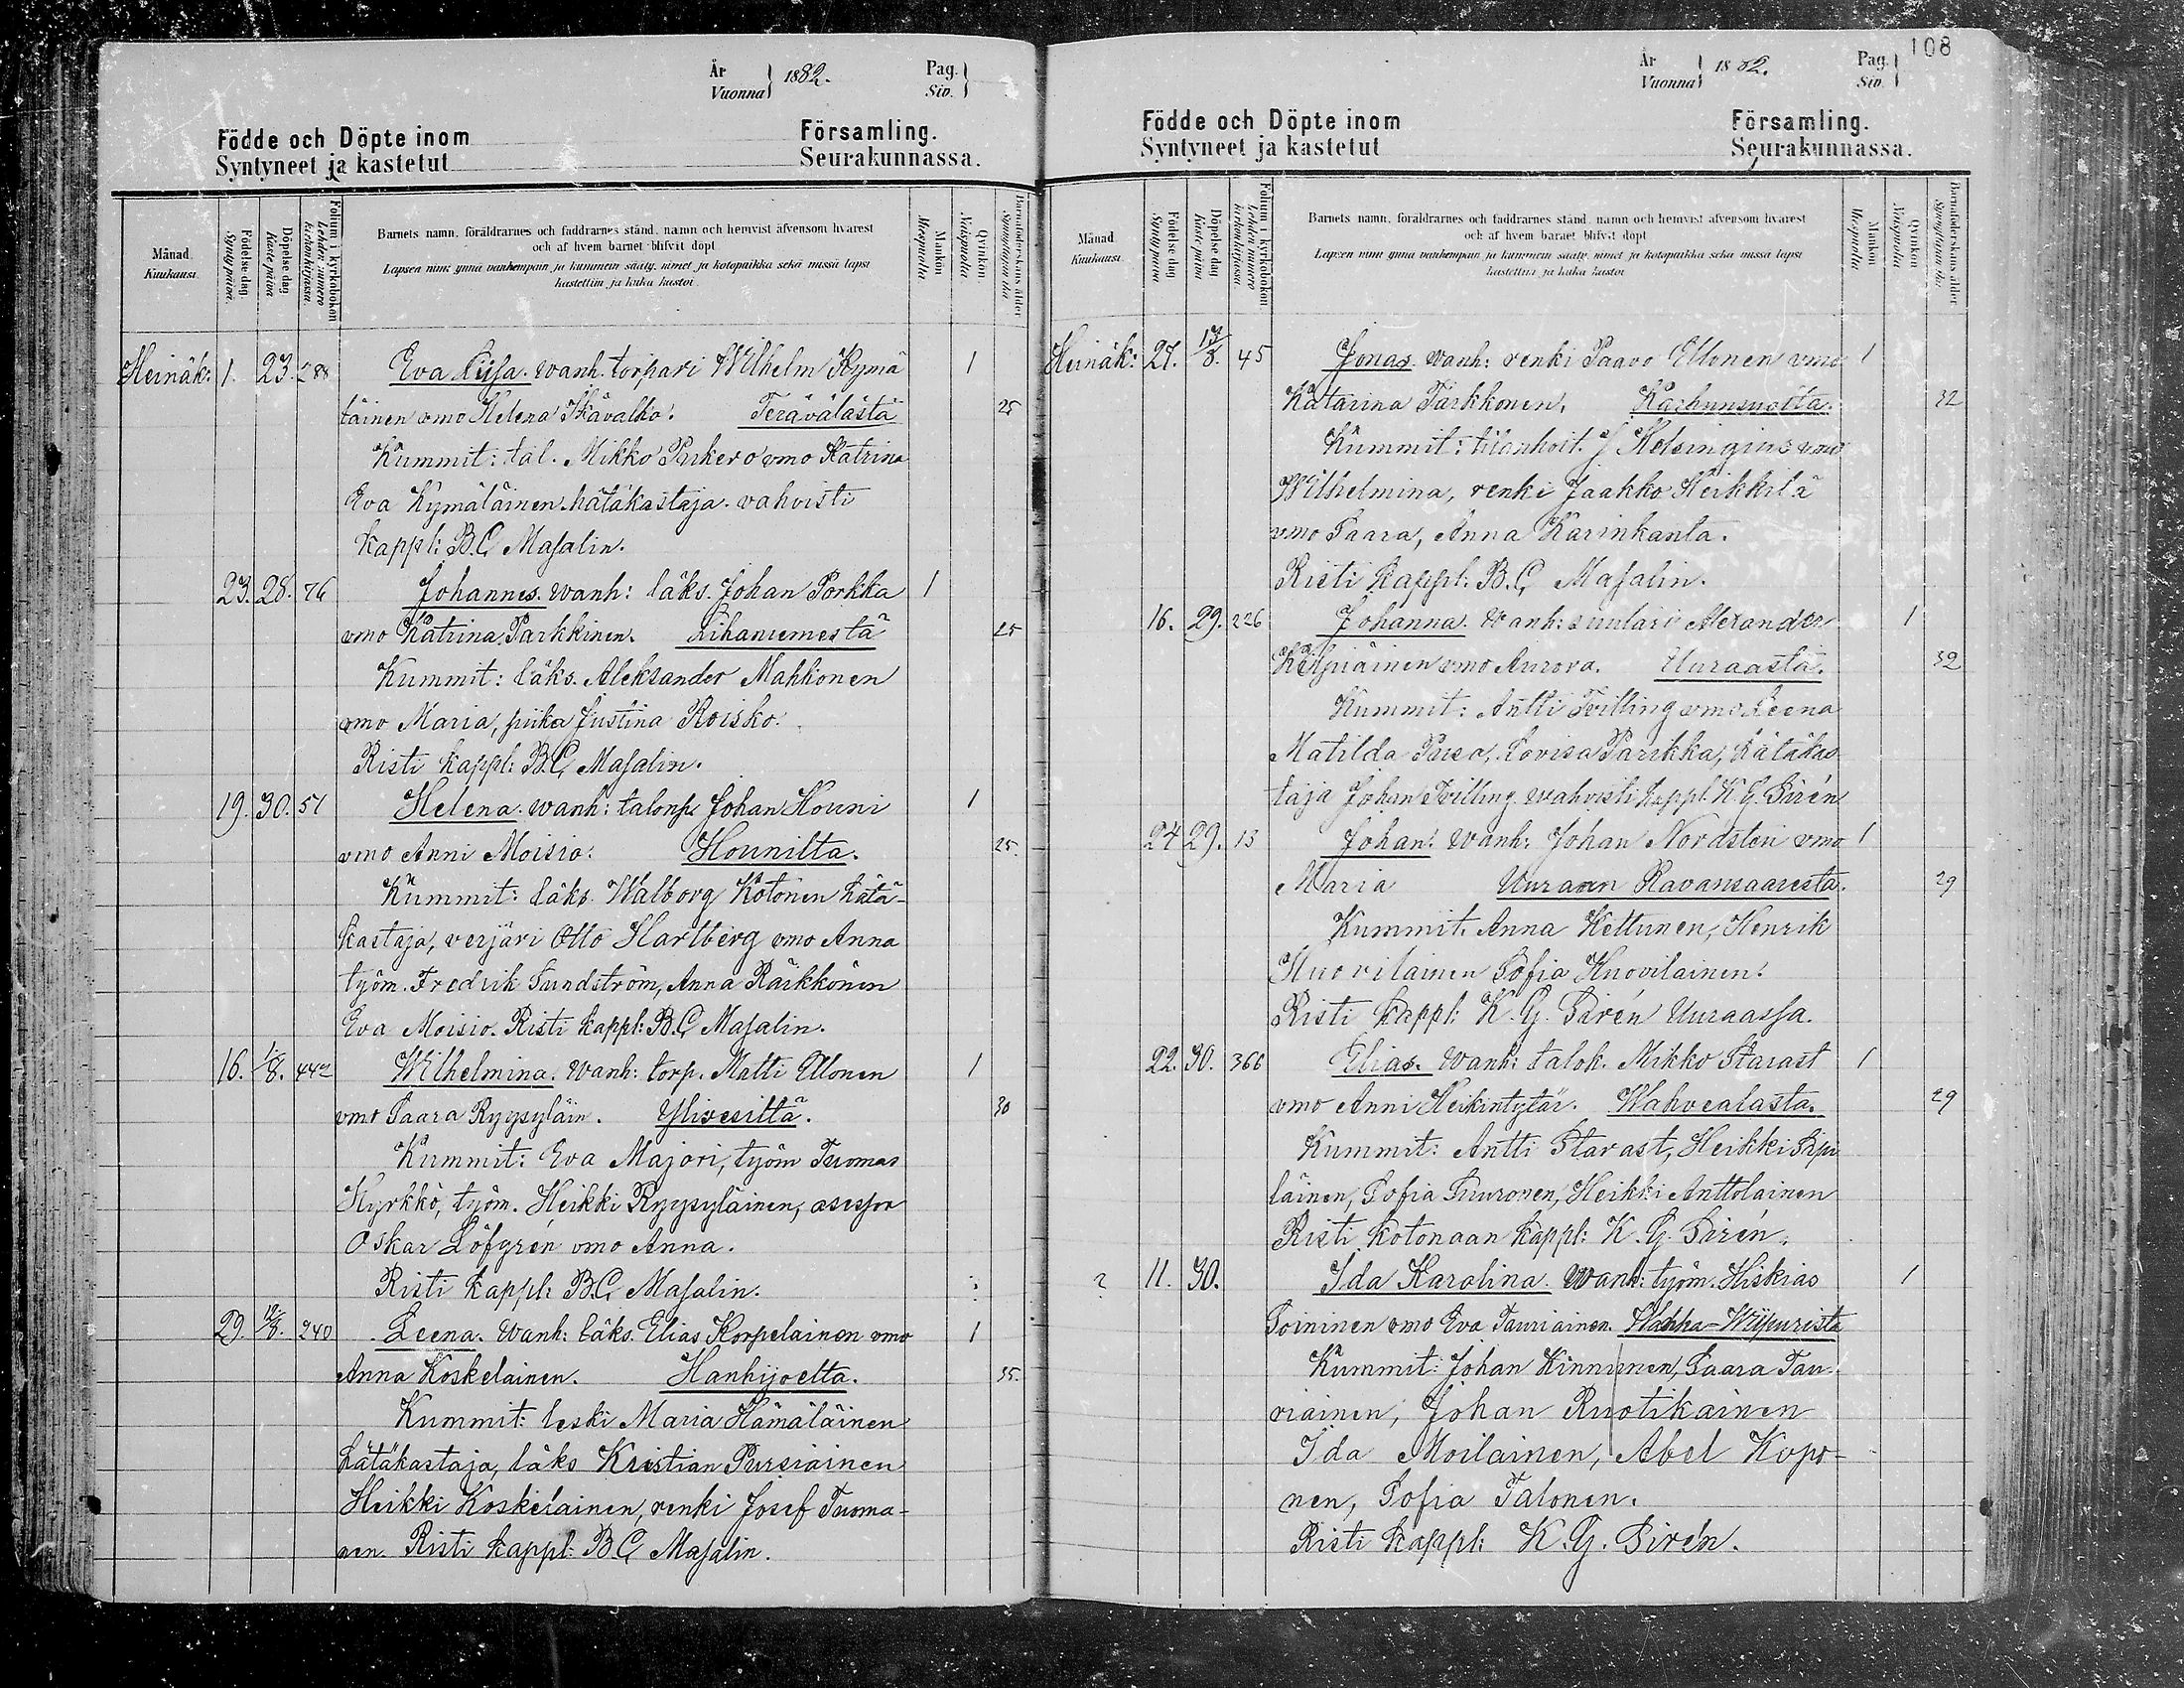 År
Vuonna } 1882.
Pag.
Siv. }
Födde och Döpte inom Församling.
Syntyneet ja kastetut Seurakunnassa.
Månad.
Kuukausi.
Födelse dag.
Synty päivä.
Döpelse dag.
Kaste päivä.
Folium i kyrkoboken
Lehden numero
kirkonkirjassa.
Barnets namn, föräldrarnes och faddrarnes stånd, namn och hemvist äfvensom hvarest
och af hvem barnet blifvit döpt
Lapsen nimi ynnä vanhempain ja kummein sääty, nimet ja kotopaikka sekä missä lapsi
kastettiin ja kuka kastoi.
Mankön.
Miespuolia.
Qvinkön.
Naispuolia.
Barnaföderskans ålder
Heinäk: 1. 23. 288 Eva Liisa. Wanh. torpari Wilhelm Kymä 1
läinen vmo Helena Hävalko. Terävälästä 25
Kummit: tal. Mikko Pukero vmo Katrina
Eva Kymäläinen hätäkastaja. vahvisti
kappl: B.C. Masalin.
23. 28. 76 Johannes. Wanh: läks. Johan Porkka 1
vmo Katrina Parkkinen. Lihaniemestä 25
Kummit: läks. Aleksander Mahkonen
vmo Maria, piika Justina Roisko.
Risti kappl: B.C. Masalin.
19. 30. 51 Helena. Wanh: talonp. Johan Houni 1
vmo Anni Moisio. Hounilta. 25.
Kummit: läks. Walborg Kotonen hätä-
kastaja, verjäri Otto Hartberg vmo Anna
työm. Fredrik Sundström, Anna Räikkönen
Eva Moisio. Risti kappl: B.C. Masalin.
16. 1/8. 442 Wilhelmina. Wanh: torp. Matti Ullonen 1
vmo Saara Ryypsyläin. Ylivesiltä. 30
Kummit: Eva Majori, työm Tuomas
Hyrkkö, työm. Heikki Ryypsyläinen, asessor
Oskar Löfgrén vmo Anna.
Risti kappl: B.C. Masalin.
29. 12/8. 240 Leena. Wanh: läks. Elias Korpelainen vmo 1
Anna Koskelainen. Hanhijoelta. 35.
Kummit: leski Maria Hämäläinen
hätäkastaja, läks Kristian Pursiainen
Heikki Koskelainen, renki Josef Tuoma-
nen. Risti kappl: B.C. Masalin.
108
År
Vuonna } 1882.
Pag.
Siv. }
Födde och Döpte inom Församling.
Syntyneet ja kastetut Seurakunnassa.
Månad.
Kuukausi.
Födelse dag
Synty päivä
Döpelse dag
Kaste päivä
Folium i kyrkoboken
Lehden numero
kirkonkirjassa.
Barnets namn, föräldrarnes och faddrarnes stånd, namn och hemvist äfvensom hvarest
och af hvem barnet blifvit döpt
Lapsen nimi ynnä vanhempain ja kummein sääty, nimet ja kotopaikka sekä missä lapsi
kastettiin ja kuka kastoi
Mankön
Miespuolia
Qvinkön
Naispuolia
Barnaföderskans ålder
Heinäk: 27. 13/8. 45 Jonas. Wanh: renki Paavo Ellonen vmo 1
Katarina Tarkkonen. Karhunsuolta. 32
Kummit: tilanhoit. J Helsingius vmo
Wilhelmina, renki Jaakko Heikkilä
vmo Saara, Anna Karinkanta.
Risti kappl: B.C. Masalin.
16. 29. 226 Johanna. Wanh: suulari Alexander 1
Kilpiäinen vmo Aurora. Uuraasta. 32
Kummit: Antti Tvilling vmo Leena
Matilda Pusa, Lovisa Parikka, hätäkas
taja Johan Tvilling. wahvisti kappl. K.G. Sirén
24 29. 13 Johan. Wanh: Johan Nordsten vmo 1
Maria Uuraan Ravansaaresta. 29
Kummit. Anna Kettunen, Henrik
Huovilainen Sofia Huovilainen.
Risti kappl: K.G. Sirén Uuraassa.
22. 30. 366 Elias. Wanh: talok. Mikko Starast 1
vmo Anni Heikintytär. Wahvialasta. 29
Kummit: Antti Starast, Heikki Sipi
läinen, Sofia Suuronen, Heikki Anttolainen
Risti kotonaan kappl: K.G. Sirén.
? 11. 30. Ida Karolina. Wanh: työm. Hiskias 1
Soininen vmo Eva Tauriainen. Wanha-Wiipurista
Kummit: Johan Kinnunen, Saara Tau-
riainen, Johan Ruotikainen
Ida Moilainen, Abel Kopo-
nen, Sofia Talonen.
Risti kappl: K.G. Sirén.